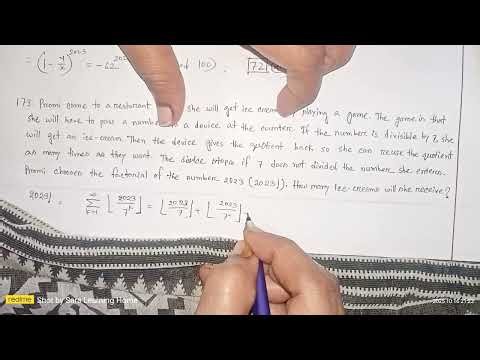 = (1 - y/x)^2023 = -62^202 nd 100) , 72
173. Promi came to a restorant she will get ice cream playing a game. The game in that
she will have to pass a number to a device at the counter. If the number is divisible by 7, she
will get an ice-cream. Then the device gives the quotient back so she can reuse the quotient
as many times as they want. The device stops if 7 does not divided the number she enters.
Promi chooses the factorial of the number 2023 (2023!). How many ice-creams will she receive?
2023! ∑ ⌊2023/7^k⌋ = ⌊2023/7⌋ + ⌊2023/7²⌋
realme Shot by Sara Learning Home 2025.10.14 21:22